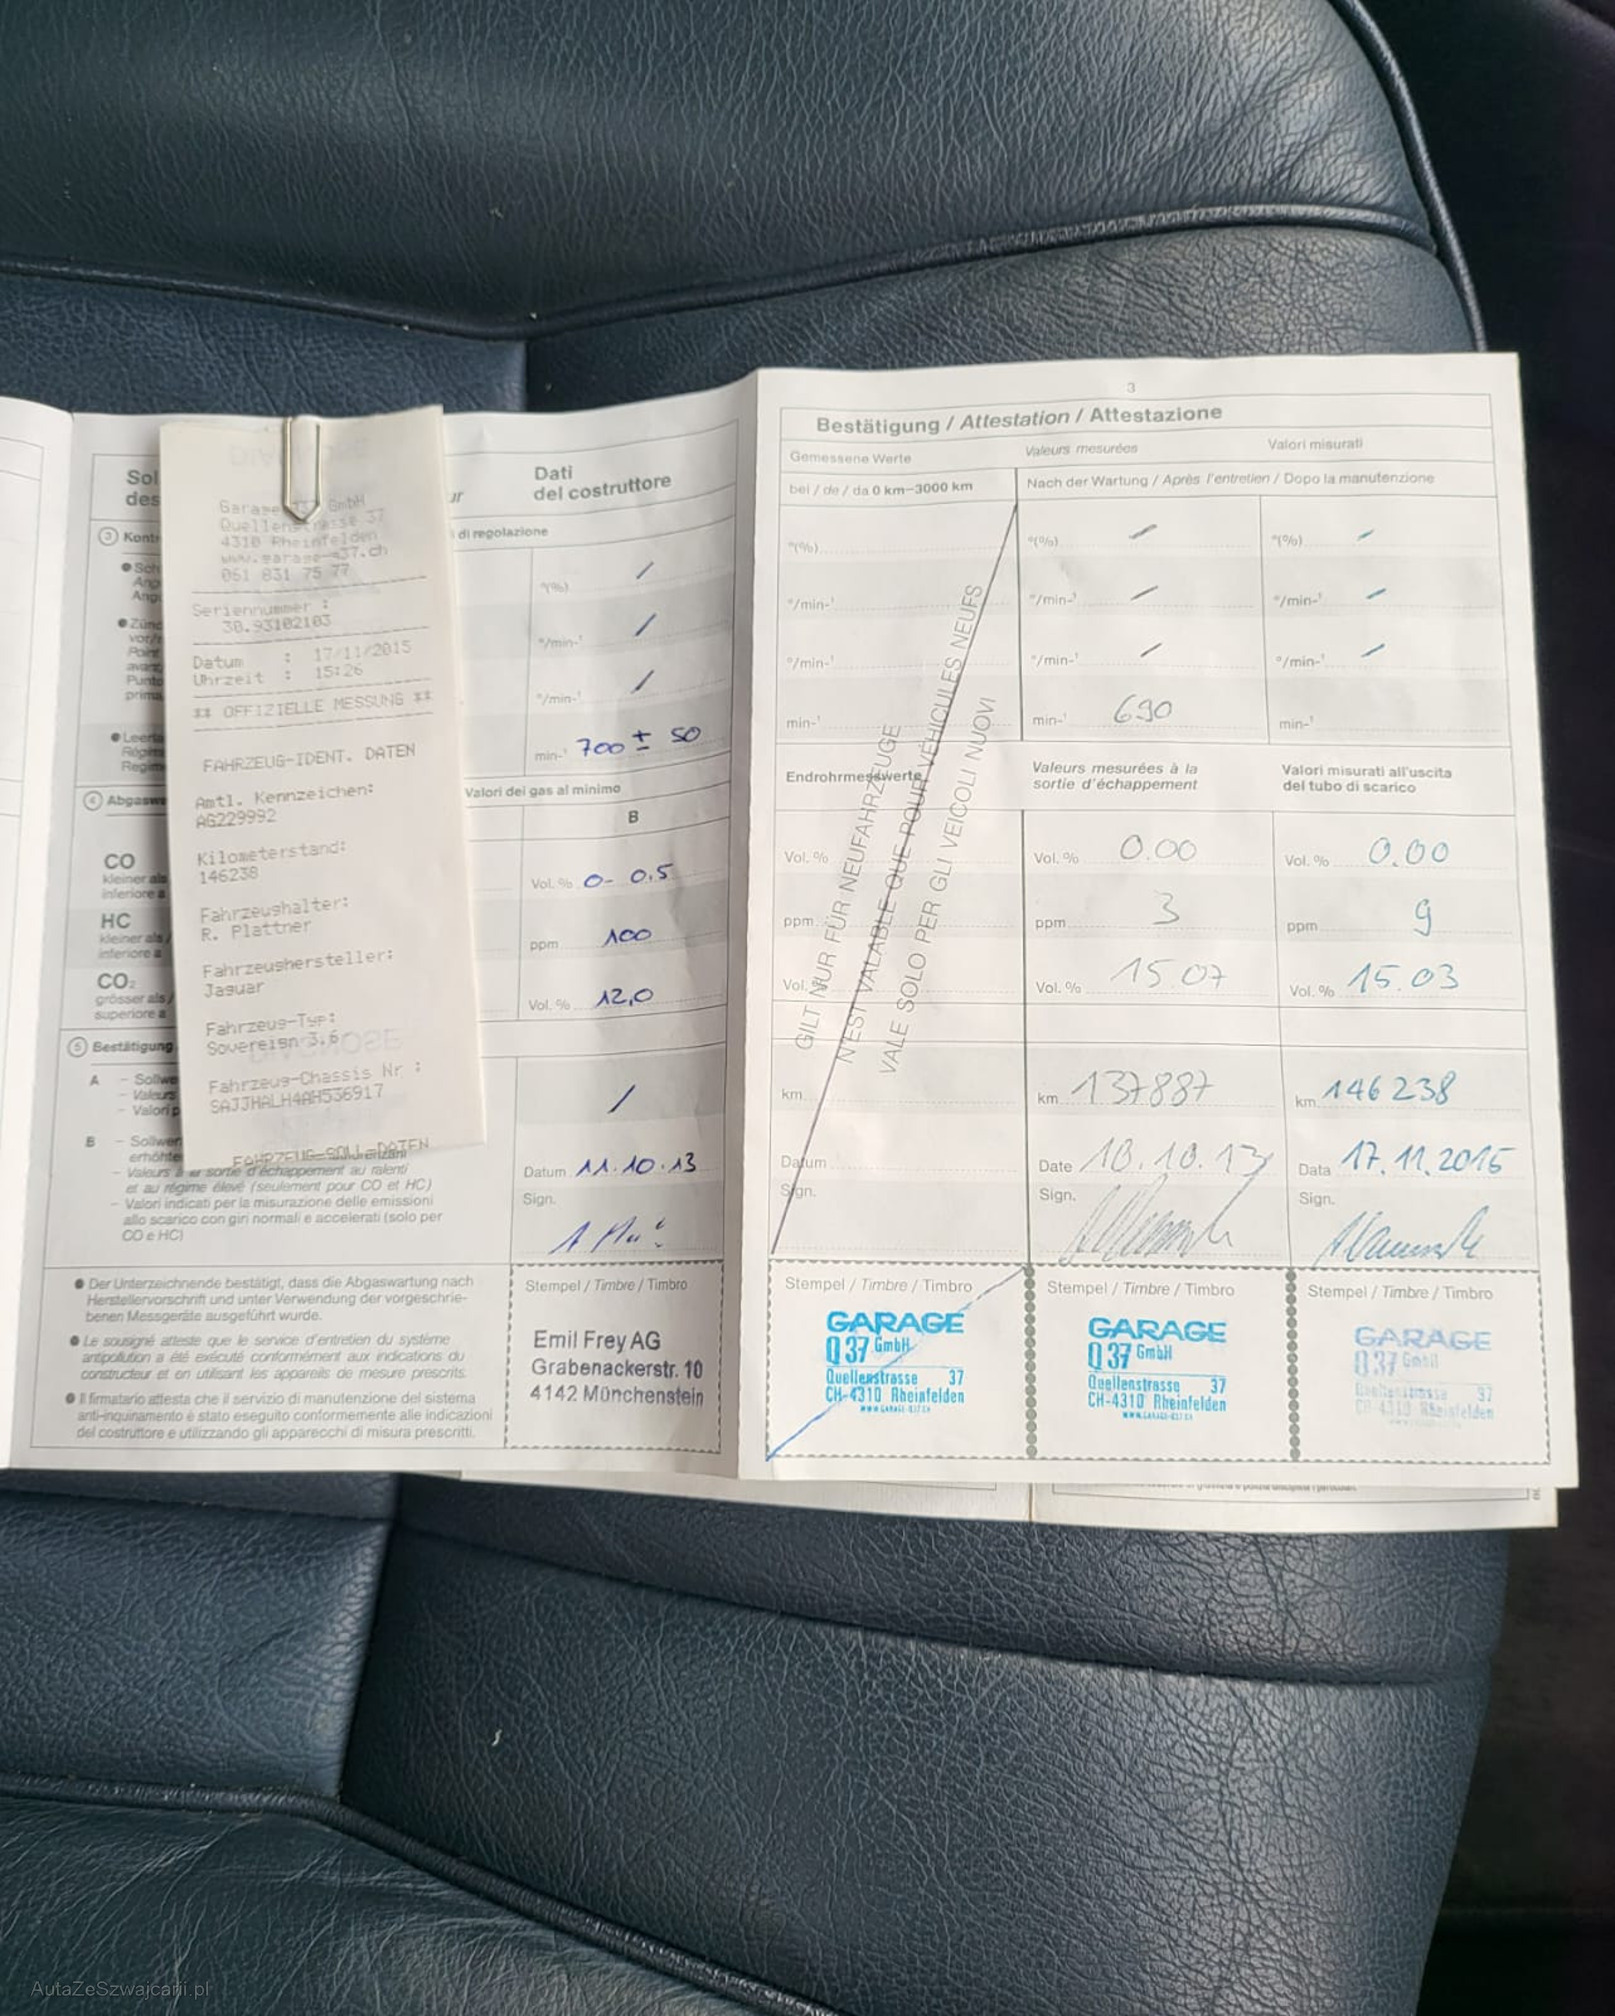 Sol
des
ur
Dati
del costruttore
3 Kont
di regolazione
Sch
Ang
Ang
°(%) /
Zünd
vor/n
Point
avan
Punto
prima
°/min-¹ /
°/min-¹ /
Leerla
Régim
Regim
min-¹ 700 ± 50
4 Abgaswe
Valori dei gas al minimo
B
CO
kleiner als
inferiore a
Vol. % 0- 0.5
HC
kleiner als /
inferiore a
ppm 100
CO₂
grösser als /
superiore a
Vol. % 12,0
5 Bestätigung
A – Sollwe
– Valeurs
– Valori p
/
B – Sollwer
erhöhte
– Valeurs à la sortie d'échappement au ralenti
et au régime élevé (seulement pour CO et HC)
– Valori indicati per la misurazione delle emissioni
allo scarico con giri normali e accelerati (solo per
CO e HC)
Datum 11.10.13
Sign.
• Der Unterzeichnende bestätigt, dass die Abgaswartung nach
Herstellervorschrift und unter Verwendung der vorgeschrie-
benen Messgeräte ausgeführt wurde.
• Le soussigné atteste que le service d'entretien du système
antipollution a été exécuté conformément aux indications du
constructeur et en utilisant les appareils de mesure prescrits.
• Il firmatario attesta che il servizio di manutenzione del sistema
anti-inquinamento è stato eseguito conformemente alle indicazioni
del costruttore e utilizzando gli apparecchi di misura prescritti.
Stempel / Timbre / Timbro
Emil Frey AG
Grabenackerstr. 10
4142 Münchenstein
Garage Q37 GmbH
Quellenstrasse 37
4310 Rheinfelden
www.garage-q37.ch
061 831 75 77
Seriennummer :
30.93102103
Datum : 17/11/2015
Uhrzeit : 15:26
** OFFIZIELLE MESSUNG **
FAHRZEUG-IDENT. DATEN
Amtl. Kennzeichen:
AG229992
Kilometerstand:
146238
Fahrzeughalter:
R. Plattner
Fahrzeughersteller:
Jaguar
Fahrzeug-Typ:
Sovereign 3.6
Fahrzeug-Chassis Nr :
SAJJHALH4AH536917
FAHRZEUG-SOLL-DATEN
3
Bestätigung / Attestation / Attestazione
Gemessene Werte
Valeurs mesurées
Valori misurati
bei / de / da 0 km–3000 km
Nach der Wartung / Après l'entretien / Dopo la manutenzione
°(%)
°(%) /
°(%) /
°/min-¹
°/min-¹ /
°/min-¹ /
°/min-¹
°/min-¹ /
°/min-¹ /
min-¹
min-¹ 690
min-¹
Endrohrmesswerte
Valeurs mesurées à la
sortie d'échappement
Valori misurati all'uscita
del tubo di scarico
Vol. %
Vol. % 0.00
Vol. % 0.00
ppm
ppm 3
ppm 9
Vol. %
Vol. % 15.07
Vol. % 15.03
GILT NUR FÜR NEUFAHRZEUGE
N'EST VALABLE QUE POUR VÉHICULES NEUFS
VALE SOLO PER GLI VEICOLI NUOVI
km
km 137887
km 146238
Datum
Date 10.10.13
Data 17.11.2015
Sign.
Sign.
Sign.
Stempel / Timbre / Timbro
GARAGE
Q37 GmbH
Quellenstrasse 37
CH-4310 Rheinfelden
WWW.GARAGE-Q37.CH
Stempel / Timbre / Timbro
GARAGE
Q37 GmbH
Quellenstrasse 37
CH-4310 Rheinfelden
WWW.GARAGE-Q37.CH
Stempel / Timbre / Timbro
GARAGE
Q37 GmbH
Quellenstrasse 37
CH-4310 Rheinfelden
AutaZeSzwajcarii.pl